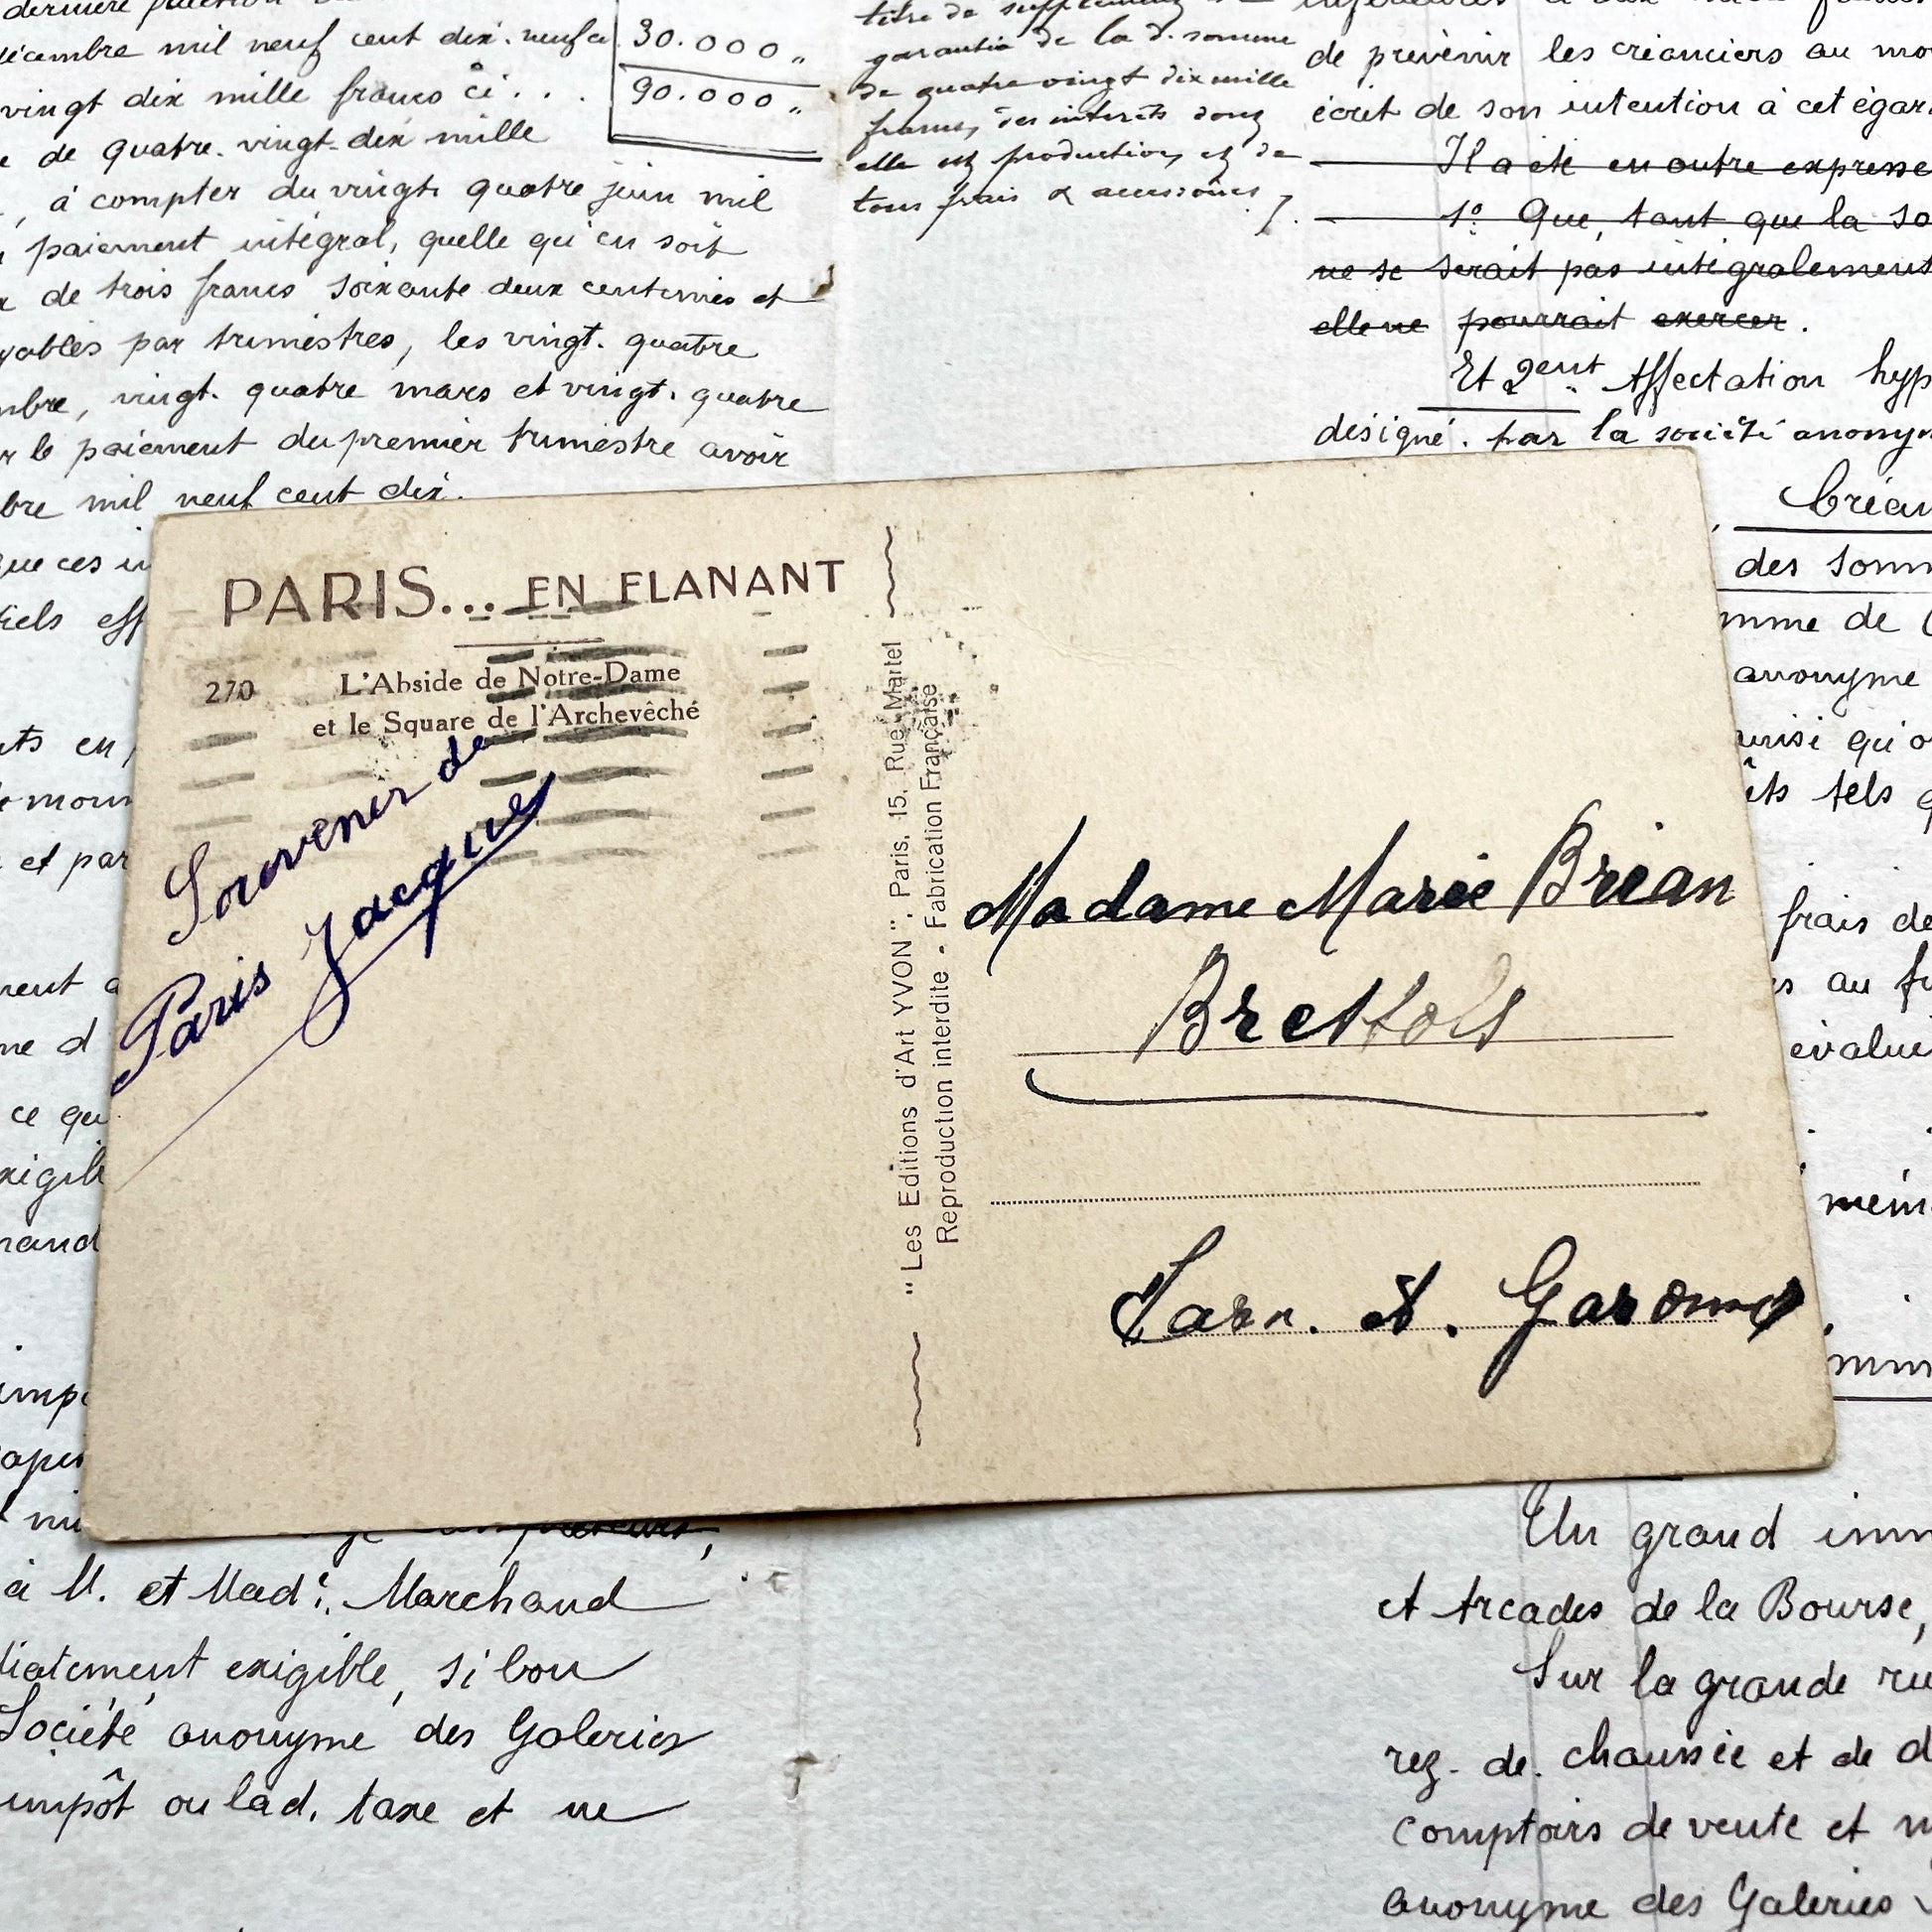 décembre mil neuf cent dix-neuf ci
30.000 "
vingt dix mille francs ci . . .
90.000 "
de quatre-vingt-dix mille
, à compter du vingt quatre juin mil
paiement intégral, quelle qu'en soit
de trois francs soixante deux centimes et
par trimestres, les vingt-quatre
vingt-quatre mars et vingt-quatre
le paiement du premier trimestre avoir
mil neuf cent dix.
que ces
titre de supplément
garantie de la d. somme
de quatre vingt dix mille
francs, des intérêts dont
elle est production, et de
tous frais & accessoires
de prévenir les créanciers au
écrit de son intention à cet
Il a été en outre
1º Que, tant que la
ne se serait pas intégralement
elle ne pourrait exercer.
Et 2ent Affectation
désigné par la société
des
de
anonyme
qu'
tels
et par
PARIS... EN FLANANT
270
L'Abside de Notre-Dame
et le Square de l'Archevêché
Souvenir de
Paris Jacques
"Les Editions d'Art YVON". Paris, 15, Rue Martel
Reproduction interdite - Fabrication Française
Madame Marie Brian
Bressols
Tarn. et. Garonne
frais de
au
ce
à M. et Made. Marchand
exigible, si bon
Société anonyme des Galeries
impôt ou lad. taxe et ne
Un grand
et Arcades de la Bourse,
Sur la grande
rez-de-chaussée et de
comptoirs de vente et
anonyme des Galeries